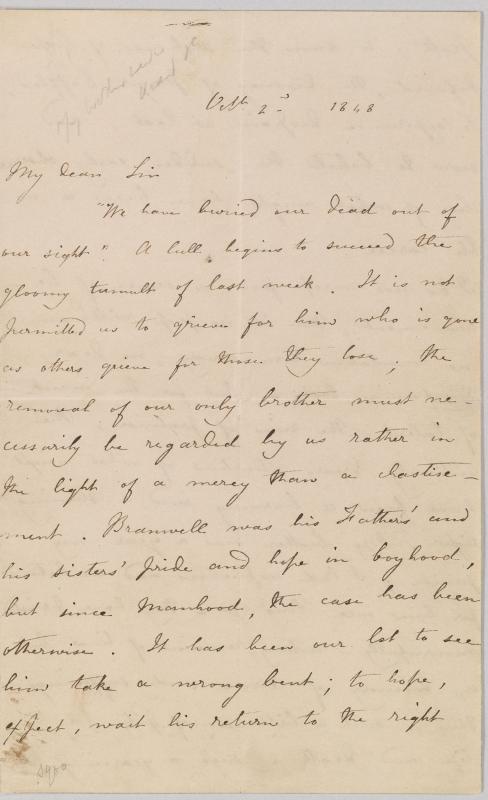 Octbr 2nd 1848
My dear Sir
"We have buried our dead out of
our sight". A lull begins to succeed the
gloomy tumult of last week. It is not
permitted us to grieve for him who is gone
as others grieve for those they lose; the
removal of our only brother must ne-
cessarily be regarded by us rather in
the light of a mercy than a chastise-
ment. Branwell was his Father's and
his sisters' pride and hope in boyhood,
but since Manhood, the case has been
otherwise. It has been our lot to see
him take a wrong bent; to hope,
expect, wait his return to the right